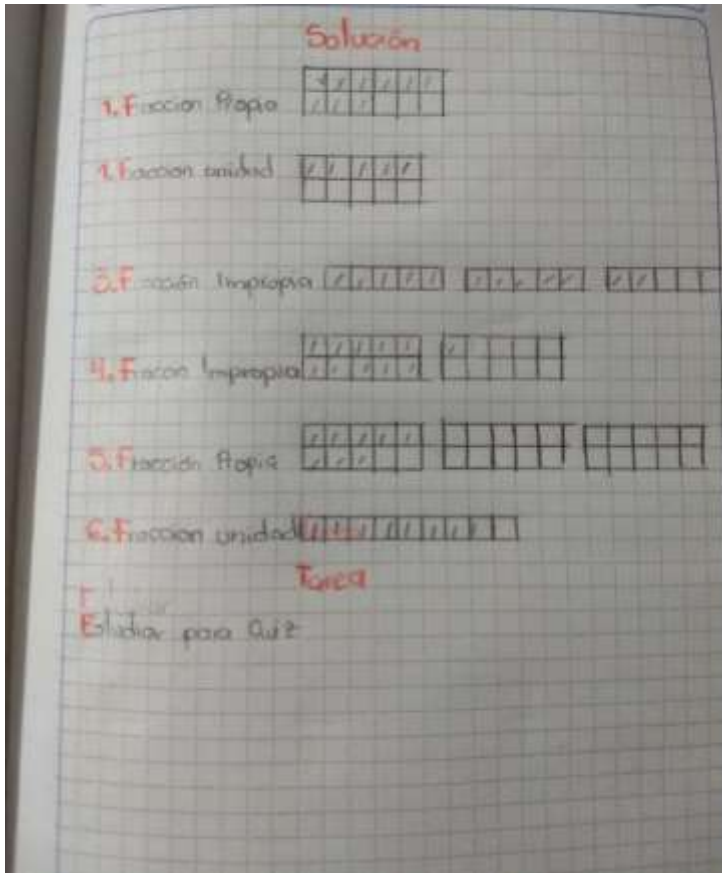 Solución
1. Fraccion Propia
1. Fraccion unidad
3. Fracción Impropia
4. Fraccon Impropia
5. Fracción Propia
6. Fraccion unidad
Tarea
Estudiar para Quiz